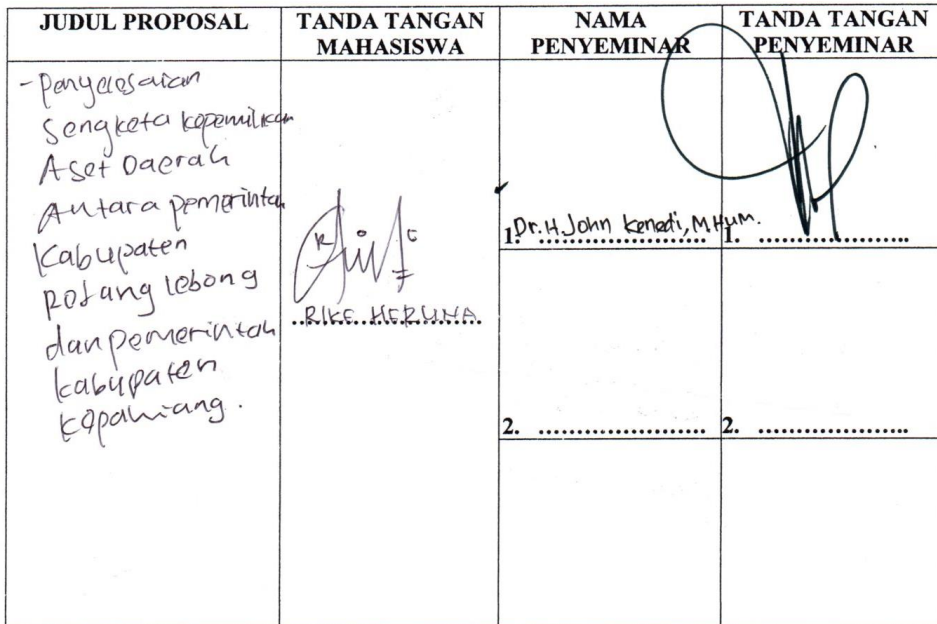 JUDUL PROPOSAL
TANDA TANGAN
MAHASISWA
NAMA
PENYEMINAR
TANDA TANGAN
PENYEMINAR
- Penyelesaian
Sengketa kepemilikan
Aset Daerah
Antara pemerintah
Kabupaten
Rejang lebong
dan pemerintah
kabupaten
kepahiang.
RIKE HERLINA
1. Dr. H. John Kenedi, M.Hum.
1. ....................
2. ......................
2. ....................